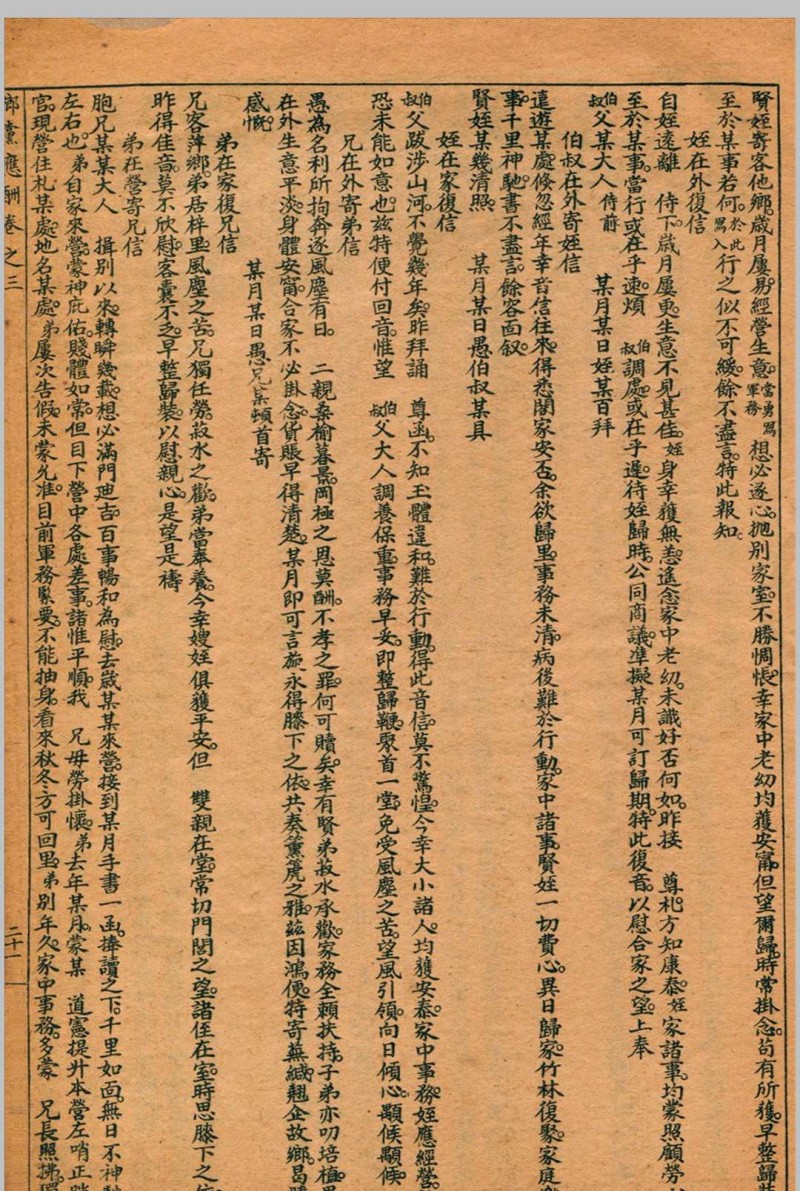 賢姪寄客他鄉歲月屢易經營生意當勇爲軍務想必遂心抛別家室不勝惆悵幸家中老幼均獲安甯但望爾歸時常掛念苟有所獲早整歸
至於某事若何於此寫入行之似不可緩餘不盡言特此報知
姪在外復信
自姪遠離 侍下歲月屢更生意不見甚佳姪身幸獲無恙遙念家中老幼未識好否何如昨接 尊札方知康泰姪家諸事均蒙照顧勞
至於某事當行或在乎速煩 伯叔調處或在乎遲待姪歸時公同商議準擬某月可訂歸期特此復音以慰合家之望上奉
伯叔父某大人 侍前 某月某日姪某百拜
伯叔在外寄姪信
遠遊某處倐忽經年幸音信往來得悉閤家安否余欲歸里事務未清病後難於行動家中諸事賢姪一切費心異日歸家竹林復聚家庭
事千里神馳書不盡言餘容面叙
賢姪某幾清照 某月某日愚伯叔某具
姪在家復信
伯叔父跋涉山河不覺幾年矣昨拜誦 尊函不知玉體違和難於行動得此音信莫不驚惶今幸大小諸人均獲安泰家中事務姪應經營
恐未能如意也玆特便付回音惟望 伯叔父大人調養保重事務早妥即整歸鞭聚首一堂免受風塵之苦望風引領向日傾心顒候顒候
兄在外寄弟信
愚為名利所拘奔逐風塵有日 二親桑榆暮景罔極之恩莫酬不孝之罪何可贖矣幸有賢弟菽水承歡家務全賴扶持子弟亦叨培植
在外生意平淡身體安甯合家不必掛念貨賬早得清楚某月即可言旋永得膝下之依共奏薰篪之雅茲因鴻便特寄蕪緘翹企故鄉曷
感慨 某月某日愚兄某頓首寄
弟在家復兄信
兄客萍鄉弟居梓里風塵之苦兄獨任勞菽水之歡弟當奉養今幸嫂姪俱獲平安但 雙親在堂常切門閭之望諸侄在室時思膝下之
昨得佳音莫不欣慰客囊不乏早整歸裝以慰親心是望是禱
弟在營寄兄信
胞兄某某大人 揖別以來轉瞬幾載想必滿門迪吉百事暢和為慰去歲某某來營接到某月手書一函捧讀之下千里如面無日不神
左右也弟自家來營蒙神庇佑賤體如常但目下營中各處差事諸惟平順我 兄毋勞掛懷弟去年某月蒙某 道憲提升本營左哨正
官現營住札某處地名某處弟屢次告假未蒙允准目前軍務緊要不能抽身看來秋冬方可回里弟別年久家中事務多蒙 兄長照拂
鄉黨應酬卷之三 二十一